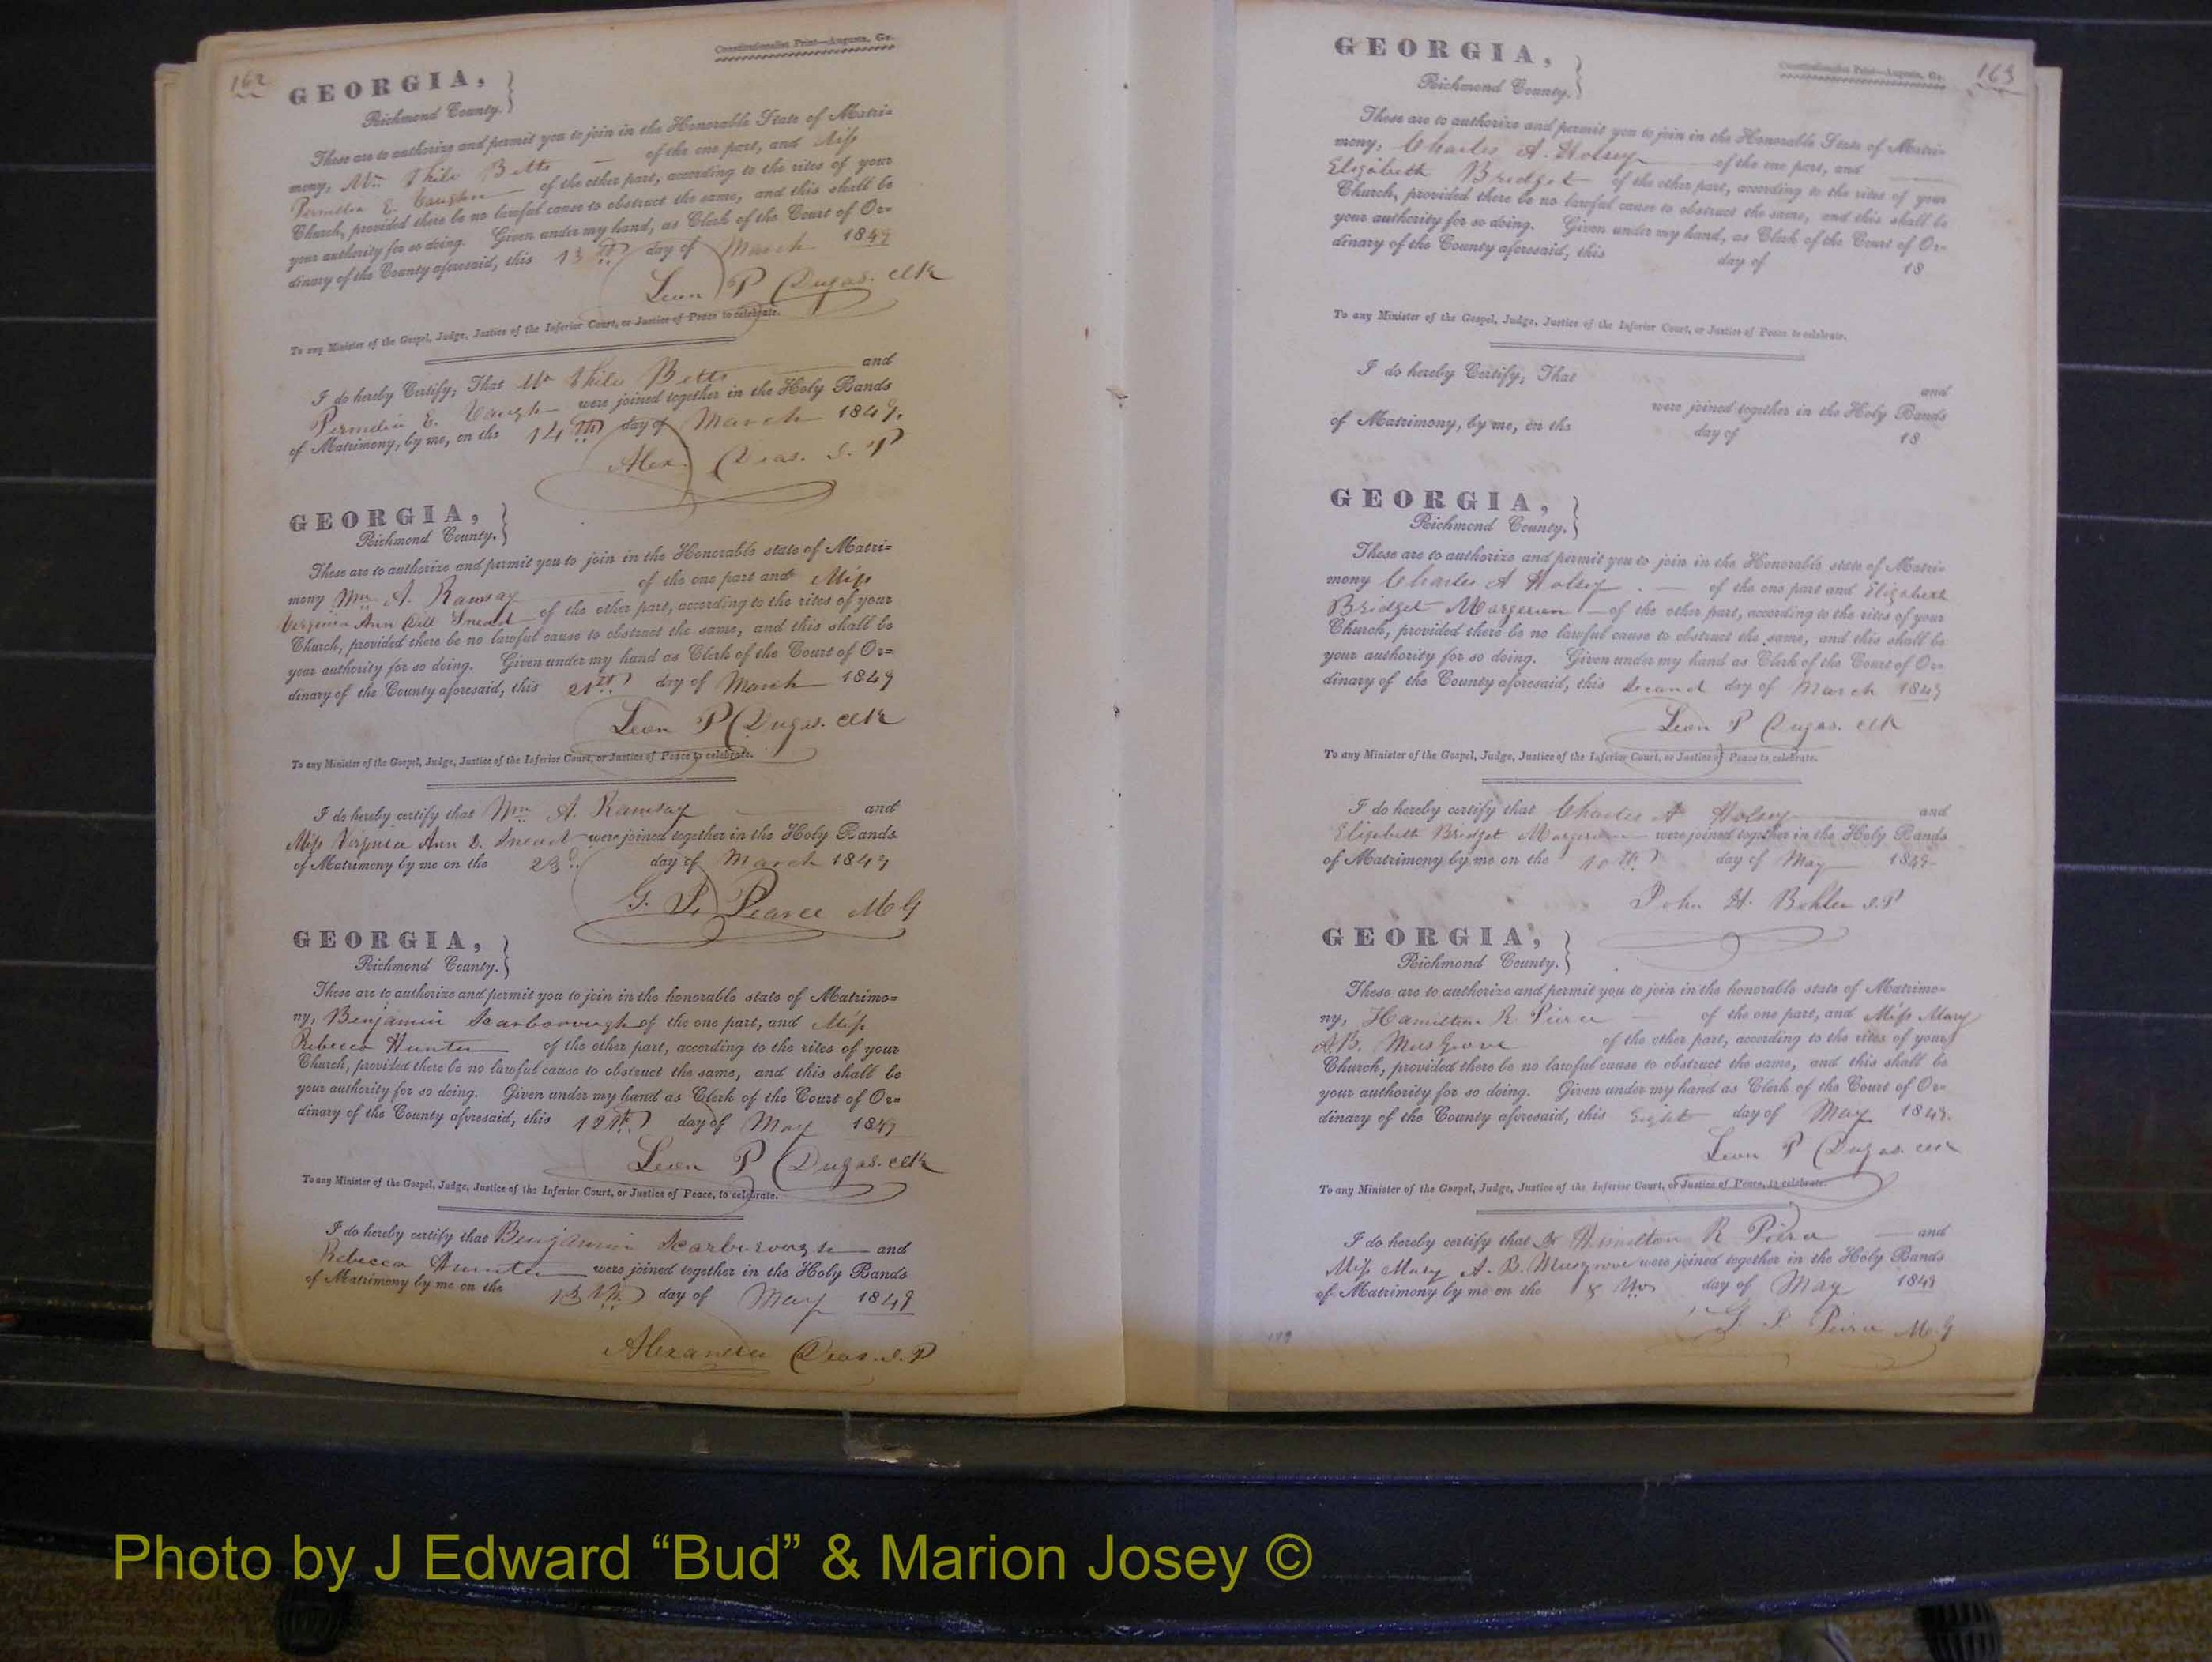 162
Constitutionalist Print—Augusta, Ga.
GEORGIA,
Richmond County.
These are to authorize and permit you to join in the Honorable State of Matri-
mony, Mr. Philo Betts of the one part, and Miss
Permelia E. Vaughn of the other part, according to the rites of your
Church, provided there be no lawful cause to obstruct the same, and this shall be
your authority for so doing. Given under my hand, as Clerk of the Court of Or-
dinary of the County aforesaid, this 13th day of March 1849
Leon P Dugas. Clk
To any Minister of the Gospel, Judge, Justice of the Inferior Court, or Justice of Peace to celebrate.
I do hereby Certify, That Mr Philo Betts and
Permelia E. Vaughn were joined together in the Holy Bands
of Matrimony, by me, on the 14th day of March 1849.
Alex. Deas. J. P
GEORGIA,
Richmond County.
These are to authorize and permit you to join in the Honorable state of Matri-
mony Wm A. Ramsay of the one part and Miss
Virginia Ann Dill Snead of the other part, according to the rites of your
Church, provided there be no lawful cause to obstruct the same, and this shall be
your authority for so doing. Given under my hand as Clerk of the Court of Or-
dinary of the County aforesaid, this 21th day of March 1849
Leon P Dugas. Clk
To any Minister of the Gospel, Judge, Justice of the Inferior Court, or Justice of Peace to celebrate.
I do hereby certify that Wm A. Ramsay and
Miss Virginia Ann D. Snead were joined together in the Holy Bands
of Matrimony by me on the 23d day of March 1849
G. F. Pearce M G
GEORGIA,
Richmond County.
These are to authorize and permit you to join in the honorable state of Matrimo-
ny, Benjamin Scarborough of the one part, and Miss
Rebecca Hunter of the other part, according to the rites of your
Church, provided there be no lawful cause to obstruct the same, and this shall be
your authority for so doing. Given under my hand as Clerk of the Court of Or-
dinary of the County aforesaid, this 12th day of May 1849
Leon P Dugas. Clk
To any Minister of the Gospel, Judge, Justice of the Inferior Court, or Justice of Peace, to celebrate.
I do hereby certify that Benjamin Scarborough and
Rebecca Hunter were joined together in the Holy Bands
of Matrimony by me on the 13th day of May 1849
Alexander Deas. J. P
Constitutionalist Print—Augusta, Ga.
163
GEORGIA,
Richmond County.
These are to authorize and permit you to join in the Honorable State of Matri-
mony, Charles A. Holsey of the one part, and
Elizabeth Bridget of the other part, according to the rites of your
Church, provided there be no lawful cause to obstruct the same, and this shall be
your authority for so doing. Given under my hand, as Clerk of the Court of Or-
dinary of the County aforesaid, this day of 18
To any Minister of the Gospel, Judge, Justice of the Inferior Court, or Justice of Peace to celebrate.
I do hereby Certify, That and
were joined together in the Holy Bands
of Matrimony, by me, on the day of 18
GEORGIA,
Richmond County.
These are to authorize and permit you to join in the Honorable state of Matri-
mony Charles A Holsey of the one part and Elizabeth
Bridget Margerum of the other part, according to the rites of your
Church, provided there be no lawful cause to obstruct the same, and this shall be
your authority for so doing. Given under my hand as Clerk of the Court of Or-
dinary of the County aforesaid, this Second day of March 1849
Leon P Dugas. Clk
To any Minister of the Gospel, Judge, Justice of the Inferior Court, or Justice of Peace to celebrate.
I do hereby certify that Charles A Holsey and
Elizabeth Bridget Margerum were joined together in the Holy Bands
of Matrimony by me on the 10th day of May 1849
John H. Bohler J.P
GEORGIA,
Richmond County.
These are to authorize and permit you to join in the honorable state of Matrimo-
ny, Hamilton R Pierce of the one part, and Miss Mary
A.B. Musgrove of the other part, according to the rites of your
Church, provided there be no lawful cause to obstruct the same, and this shall be
your authority for so doing. Given under my hand as Clerk of the Court of Or-
dinary of the County aforesaid, this Eight day of May 1849.
Leon P Dugas. Clk
To any Minister of the Gospel, Judge, Justice of the Inferior Court, or Justice of Peace, to celebrate.
I do hereby certify that Hamilton R Pierce and
Miss Mary A. B. Musgrove were joined together in the Holy Bands
of Matrimony by me on the 8 day of May 1849
P Pierce M. G
Photo by J Edward “Bud” & Marion Josey ©